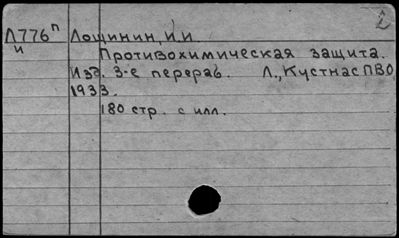 Л776п Лощинин, И.И.
и Противохимическая защита.
Изд. 3-е перераб. Л., Кустнас ПВО,
1933.
180 стр. с илл.